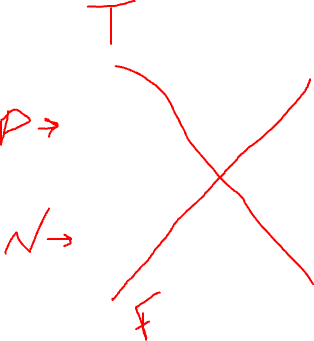 T
P →
N →
F